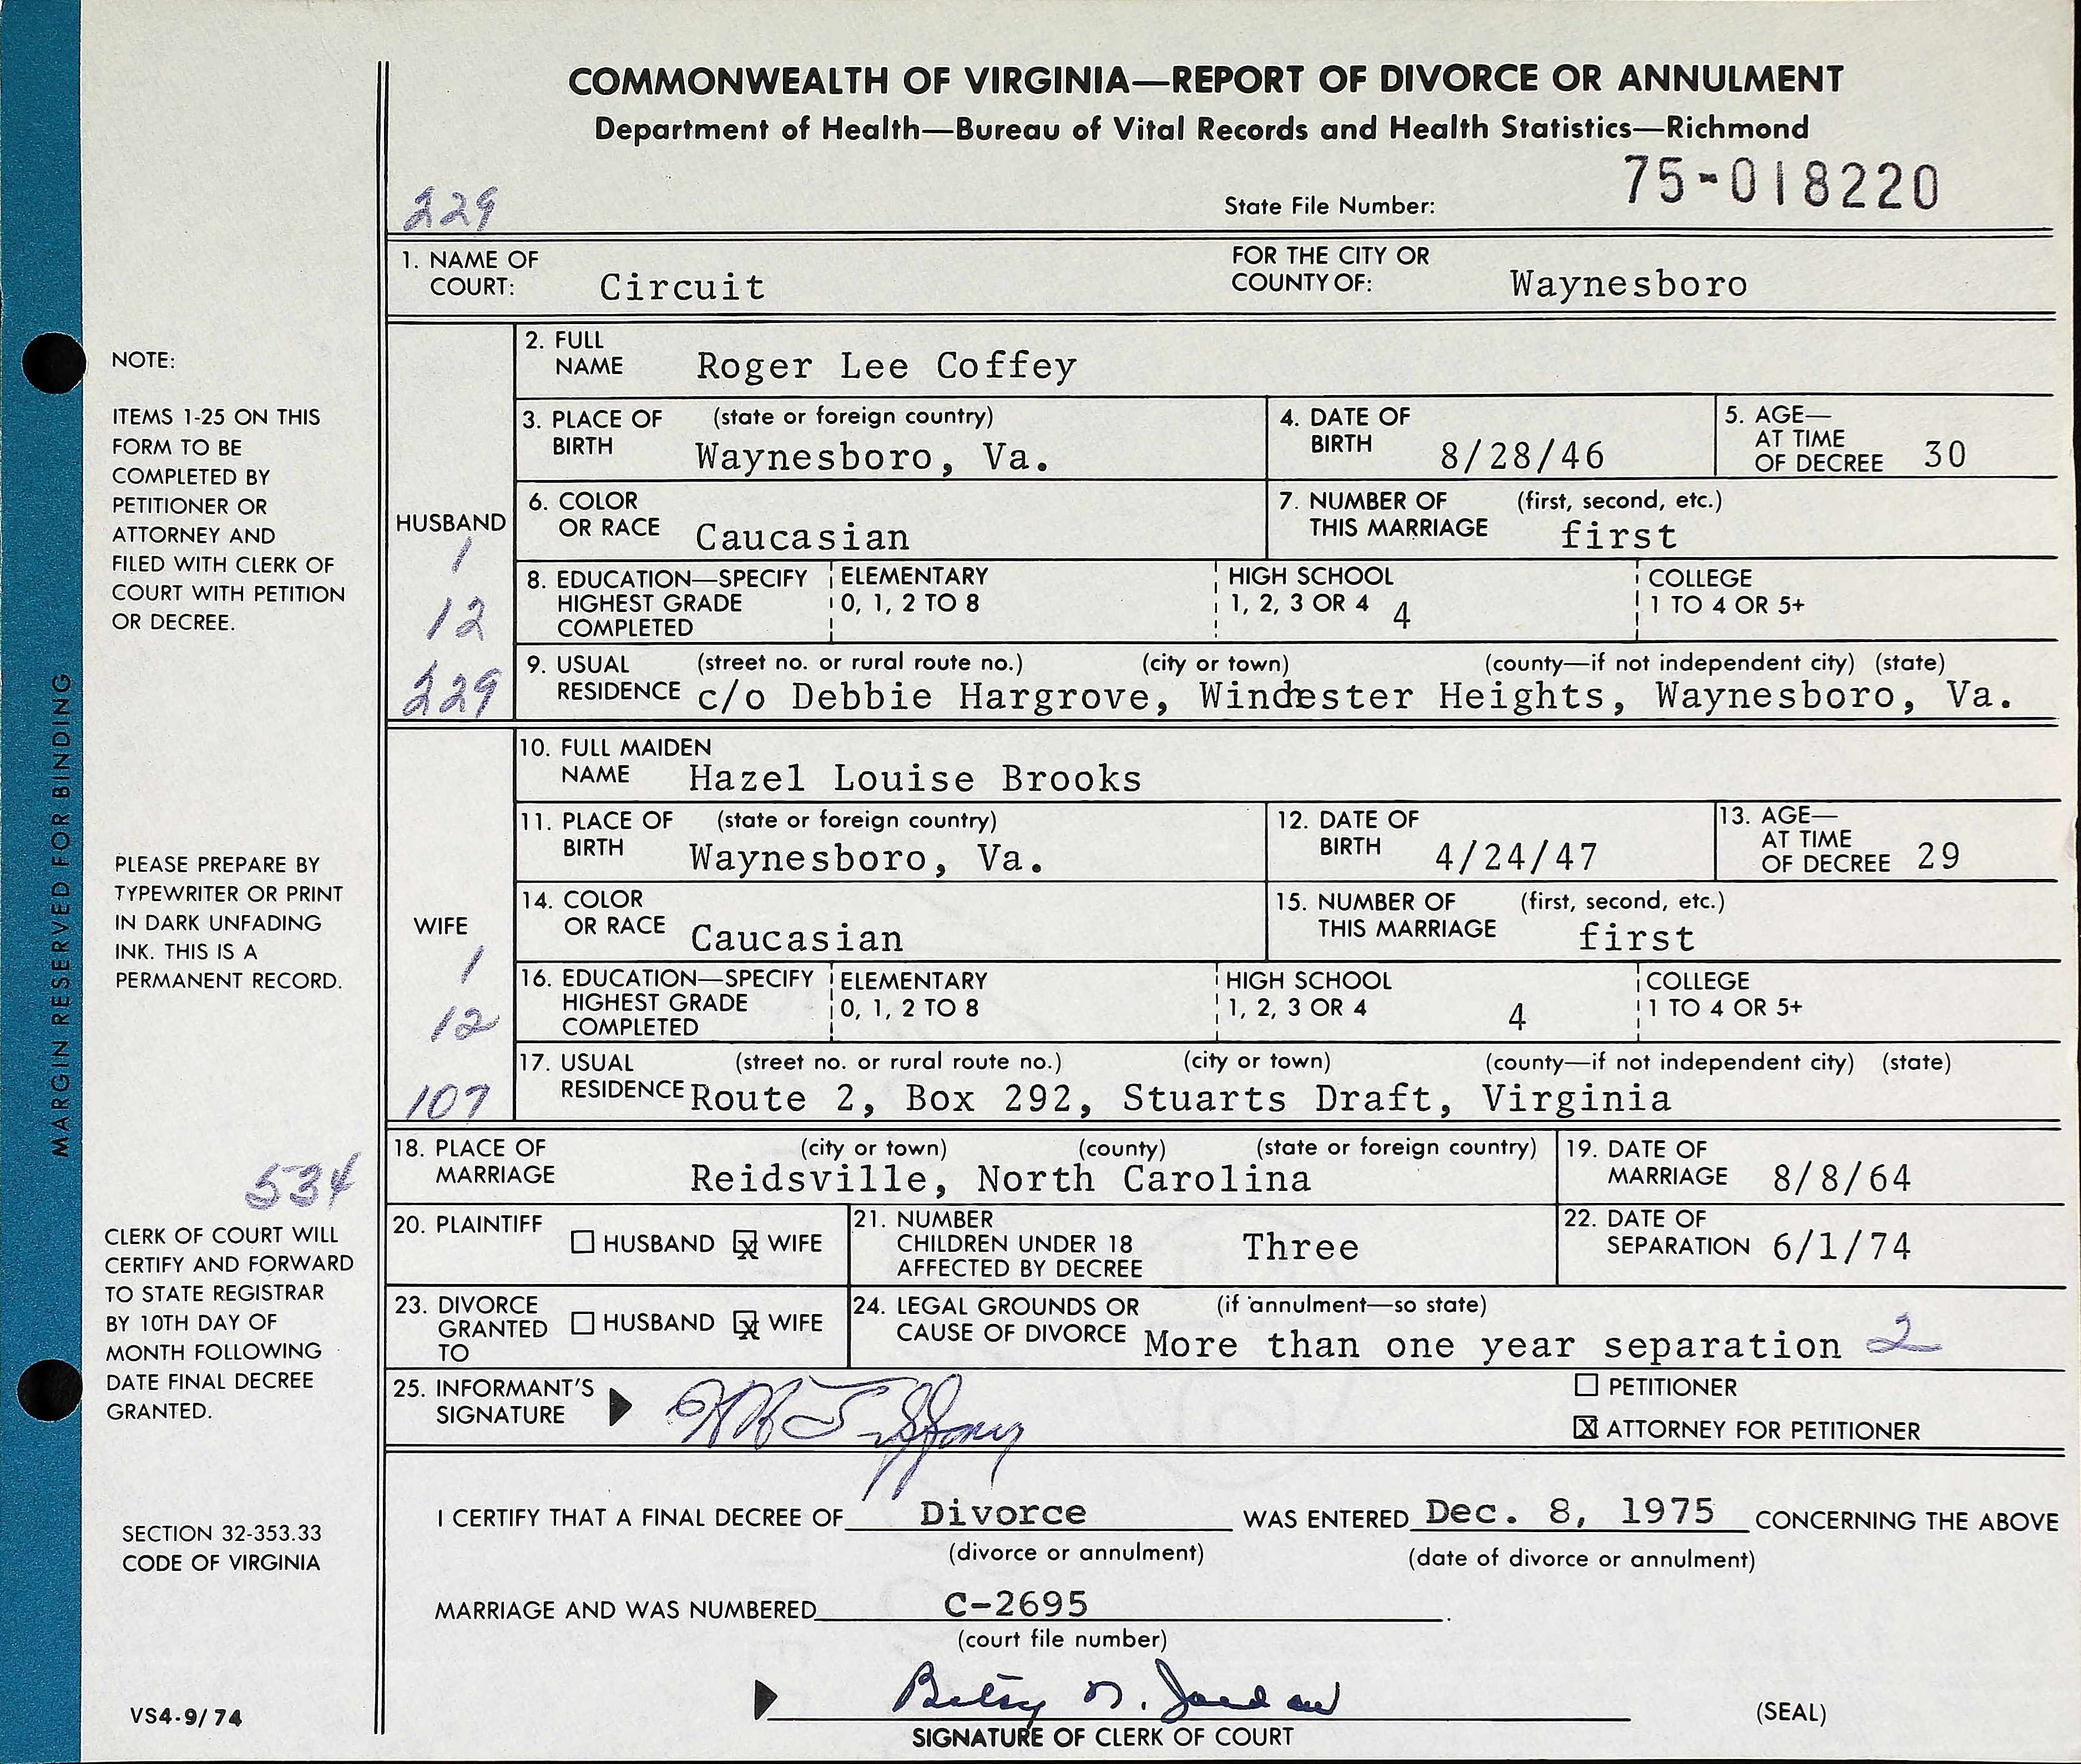 COMMONWEALTH OF VIRGINIA—REPORT OF DIVORCE OR ANNULMENT
Department of Health—Bureau of Vital Records and Health Statistics—Richmond
229
State File Number: 75-018220
1. NAME OF COURT: Circuit FOR THE CITY OR COUNTY OF: Waynesboro
HUSBAND
1
12
229
2. FULL NAME Roger Lee Coffey
3. PLACE OF BIRTH (state or foreign country) Waynesboro, Va.
4. DATE OF BIRTH 8/28/46
5. AGE— AT TIME OF DECREE 30
6. COLOR OR RACE Caucasian
7. NUMBER OF THIS MARRIAGE (first, second, etc.) first
8. EDUCATION—SPECIFY HIGHEST GRADE COMPLETED
ELEMENTARY 0, 1, 2 TO 8
HIGH SCHOOL 1, 2, 3 OR 4 4
COLLEGE 1 TO 4 OR 5+
9. USUAL RESIDENCE (street no. or rural route no.) (city or town) (county—if not independent city) (state)
c/o Debbie Hargrove, Windester Heights, Waynesboro, Va.
WIFE
1
12
107
10. FULL MAIDEN NAME Hazel Louise Brooks
11. PLACE OF BIRTH (state or foreign country) Waynesboro, Va.
12. DATE OF BIRTH 4/24/47
13. AGE— AT TIME OF DECREE 29
14. COLOR OR RACE Caucasian
15. NUMBER OF THIS MARRIAGE (first, second, etc.) first
16. EDUCATION—SPECIFY HIGHEST GRADE COMPLETED
ELEMENTARY 0, 1, 2 TO 8
HIGH SCHOOL 1, 2, 3 OR 4 4
COLLEGE 1 TO 4 OR 5+
17. USUAL RESIDENCE (street no. or rural route no.) (city or town) (county—if not independent city) (state)
Route 2, Box 292, Stuarts Draft, Virginia
18. PLACE OF MARRIAGE (city or town) (county) (state or foreign country)
Reidsville, North Carolina
19. DATE OF MARRIAGE 8/8/64
20. PLAINTIFF ☐ HUSBAND ☒ WIFE
21. NUMBER CHILDREN UNDER 18 AFFECTED BY DECREE Three
22. DATE OF SEPARATION 6/1/74
23. DIVORCE GRANTED TO ☐ HUSBAND ☒ WIFE
24. LEGAL GROUNDS OR CAUSE OF DIVORCE (if annulment—so state) More than one year separation 2
25. INFORMANT'S SIGNATURE
☐ PETITIONER
☒ ATTORNEY FOR PETITIONER
I CERTIFY THAT A FINAL DECREE OF Divorce WAS ENTERED Dec. 8, 1975 CONCERNING THE ABOVE
(divorce or annulment) (date of divorce or annulment)
MARRIAGE AND WAS NUMBERED C-2695.
(court file number)
Betsy N. Jordan
SIGNATURE OF CLERK OF COURT
(SEAL)
MARGIN RESERVED FOR BINDING
NOTE:
ITEMS 1-25 ON THIS
FORM TO BE
COMPLETED BY
PETITIONER OR
ATTORNEY AND
FILED WITH CLERK OF
COURT WITH PETITION
OR DECREE.
PLEASE PREPARE BY
TYPEWRITER OR PRINT
IN DARK UNFADING
INK. THIS IS A
PERMANENT RECORD.
534
CLERK OF COURT WILL
CERTIFY AND FORWARD
TO STATE REGISTRAR
BY 10TH DAY OF
MONTH FOLLOWING
DATE FINAL DECREE
GRANTED.
SECTION 32-353.33
CODE OF VIRGINIA
VS4-9/74